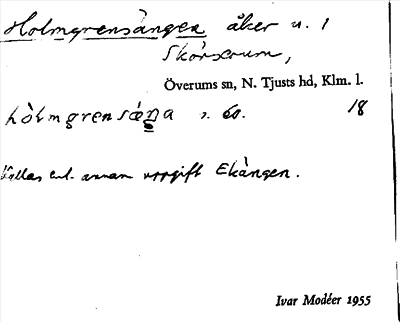 Holmgrensängen åker u. 1
Skörserum,
Överums sn, N. Tjusts hd, Klm. l.
hòlmgrensæŋa s. 18
Kallas enl. annan uppgift Ekängen.
Ivar Modéer 1955